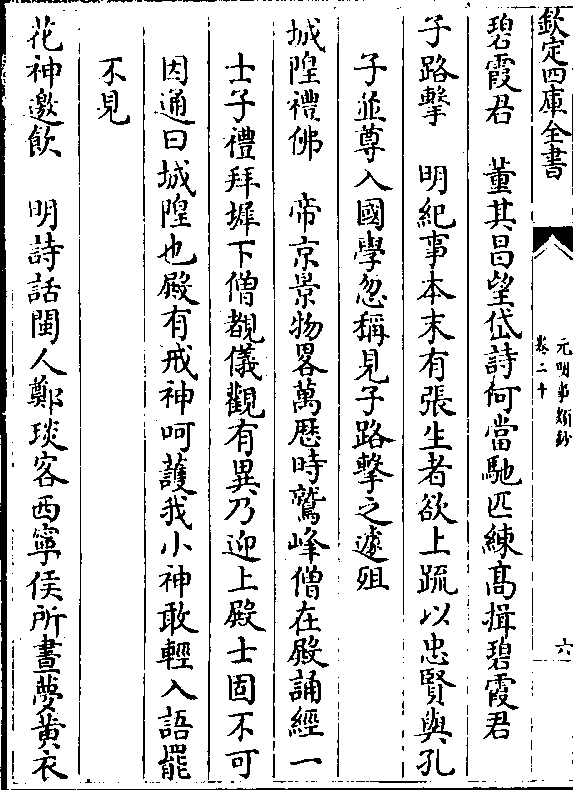 欽定四庫全書
元明事類鈔
卷二十
六
碧霞君　董其昌望岱詩何當馳匹練高揖碧霞君
子路擊　明紀事本末有張生者欲上疏以忠賢與孔
子並尊入國學忽稱見子路擊之遽殂
城隍禮佛　帝京景物畧萬歷時鷲峰僧在殿誦經一
士子禮拜墀下僧覩儀觀有異乃迎上殿士固不可
因通曰城隍也殿有戒神呵護我小神敢輕入語罷
不見
花神邀飲　明詩話閩人鄭琰客西寧侯所晝夢黄衣